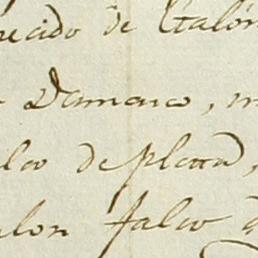 ecido de Galón
Damasco, 
de plata,
alon falso d